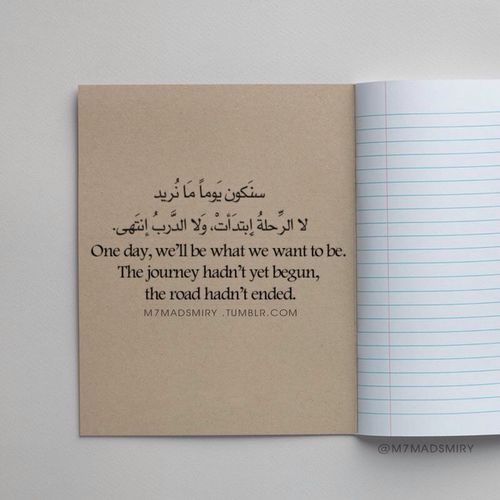 سنَكون يَوماً مَا نُريد
لا الرِّحلةُ إبتدَأتْ، وَلا الدَّربُ إنتَهى.
One day, we'll be what we want to be.
The journey hadn't yet begun,
the road hadn't ended.
M7MADSMIRY .TUMBLR.COM
@M7MADSMIRY